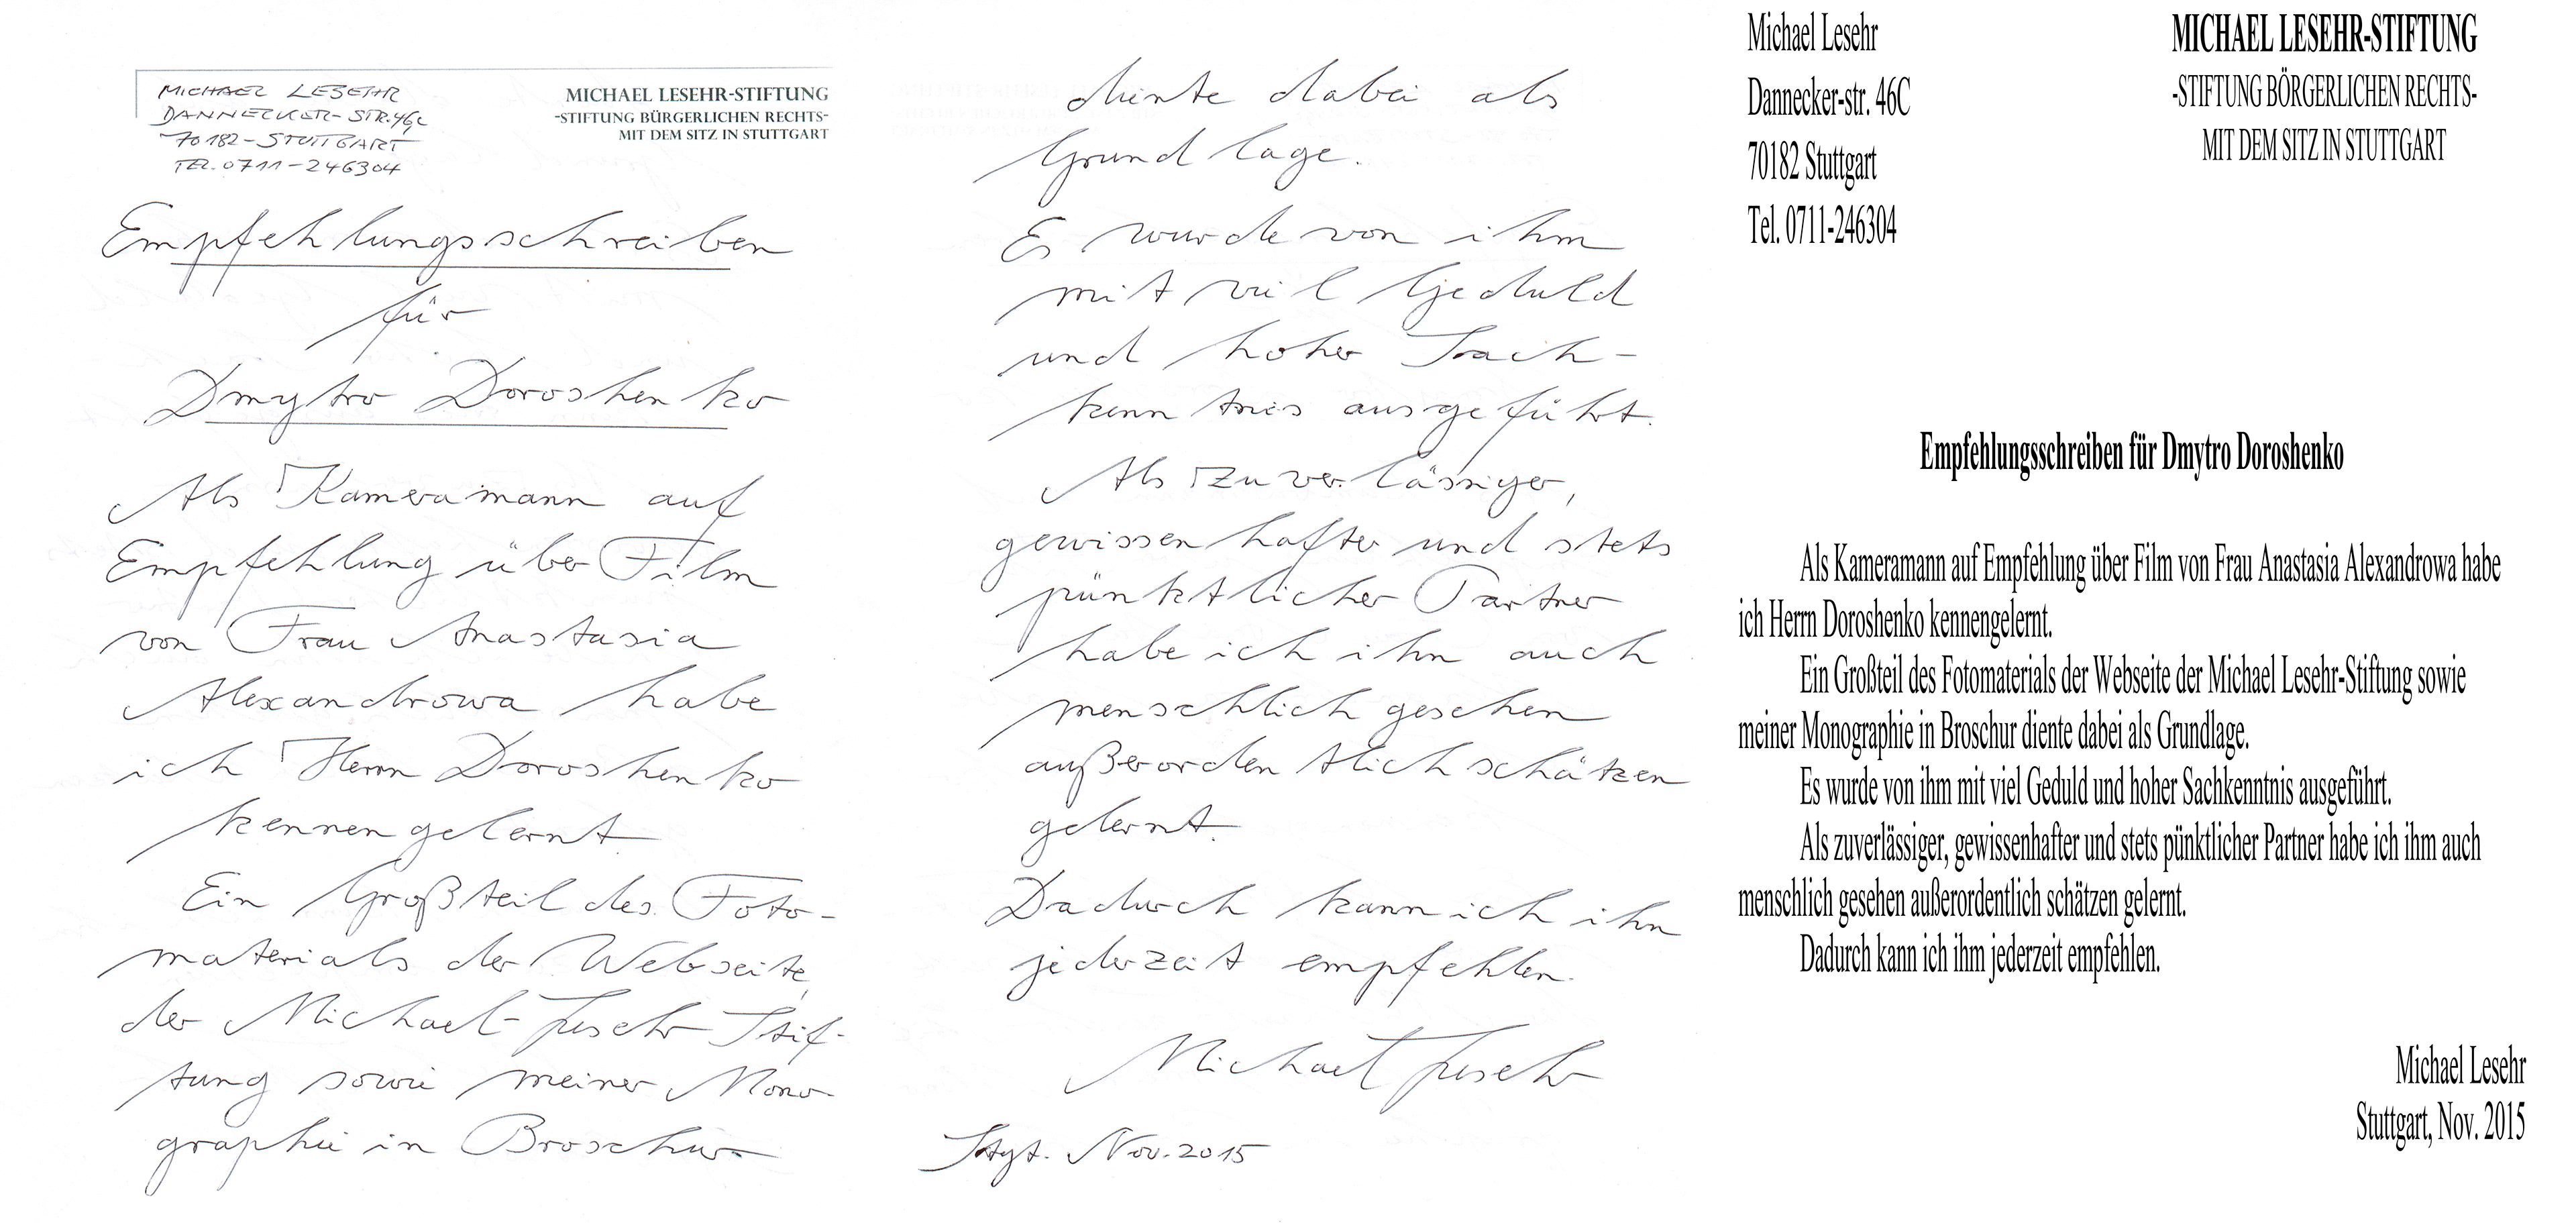 MICHAEL LESEHR
DANNECKER-STR.46c
70182-STUTTGART
TEL. 0711-246304
MICHAEL LESEHR-STIFTUNG
-STIFTUNG BÜRGERLICHEN RECHTS-
MIT DEM SITZ IN STUTTGART
Empfehlungsschreiben
für
Dmytro Doroshenko
Als Kameramann auf
Empfehlung über Film
von Frau Anastasia
Alexandrowa habe
ich Herrn Doroshenko
kennengelernt.
Ein Großteil des Foto-
materials der Webseite,
der Michael-Lesehr Stif-
tung sowie meiner Mono-
graphie in Broschur
diente dabei als
Grundlage.
Es wurde von ihm
mit viel Geduld
und hoher Sach-
kenntnis ausgeführt.
Als zuverlässiger,
gewissenhafter und stets
pünktlicher Partner
habe ich ihn auch
menschlich gesehen
außerordentlich schätzen
gelernt.
Dadurch kann ich ihn
jederzeit empfehlen.
Michael Lesehr
Stgt. Nov. 2015
Michael Lesehr
Dannecker-str. 46C
70182 Stuttgart
Tel. 0711-246304
MICHAEL LESEHR-STIFTUNG
-STIFTUNG BÖRGERLICHEN RECHTS-
MIT DEM SITZ IN STUTTGART
Empfehlungsschreiben für Dmytro Doroshenko
Als Kameramann auf Empfehlung über Film von Frau Anastasia Alexandrowa habe
ich Herrn Doroshenko kennengelernt.
Ein Großteil des Fotomaterials der Webseite der Michael Lesehr-Stiftung sowie
meiner Monographie in Broschur diente dabei als Grundlage.
Es wurde von ihm mit viel Geduld und hoher Sachkenntnis ausgeführt.
Als zuverlässiger, gewissenhafter und stets pünktlicher Partner habe ich ihm auch
menschlich gesehen außerordentlich schätzen gelernt.
Dadurch kann ich ihm jederzeit empfehlen.
Michael Lesehr
Stuttgart, Nov. 2015